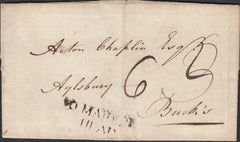 Acton Chaplin Esqr
Aylsbury
6
Buck's
MAIDEN
HEAD